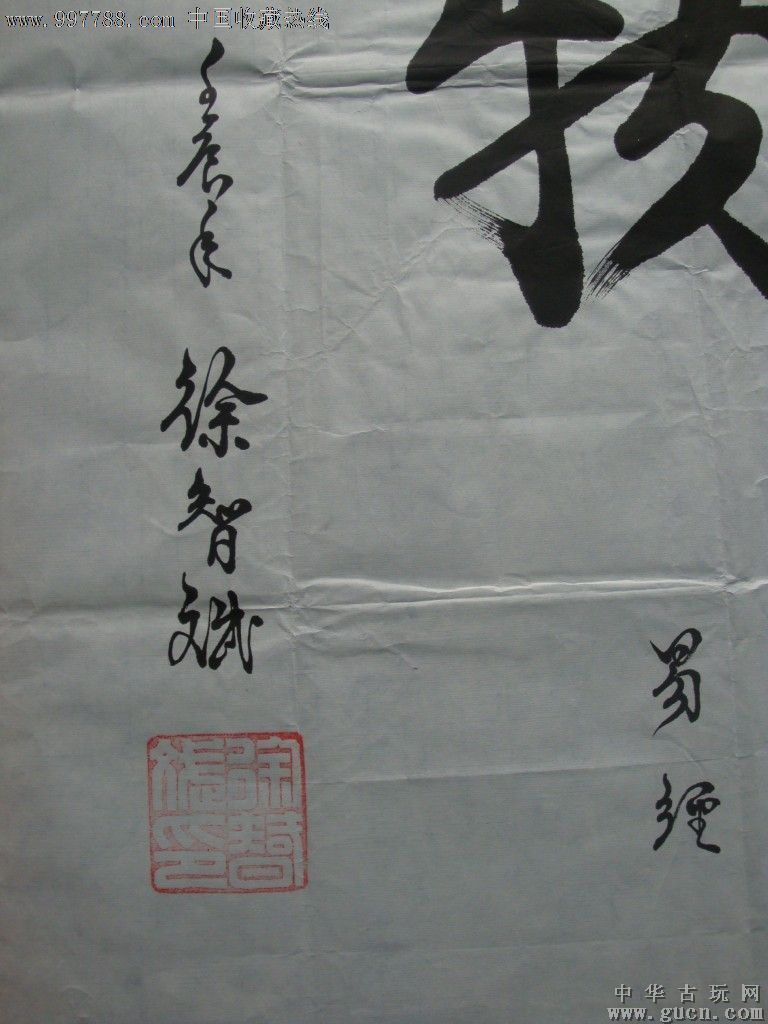 www.997788.com 中国收藏热线
易經
壬辰年 徐智斌
中华古玩网
www.gucn.com